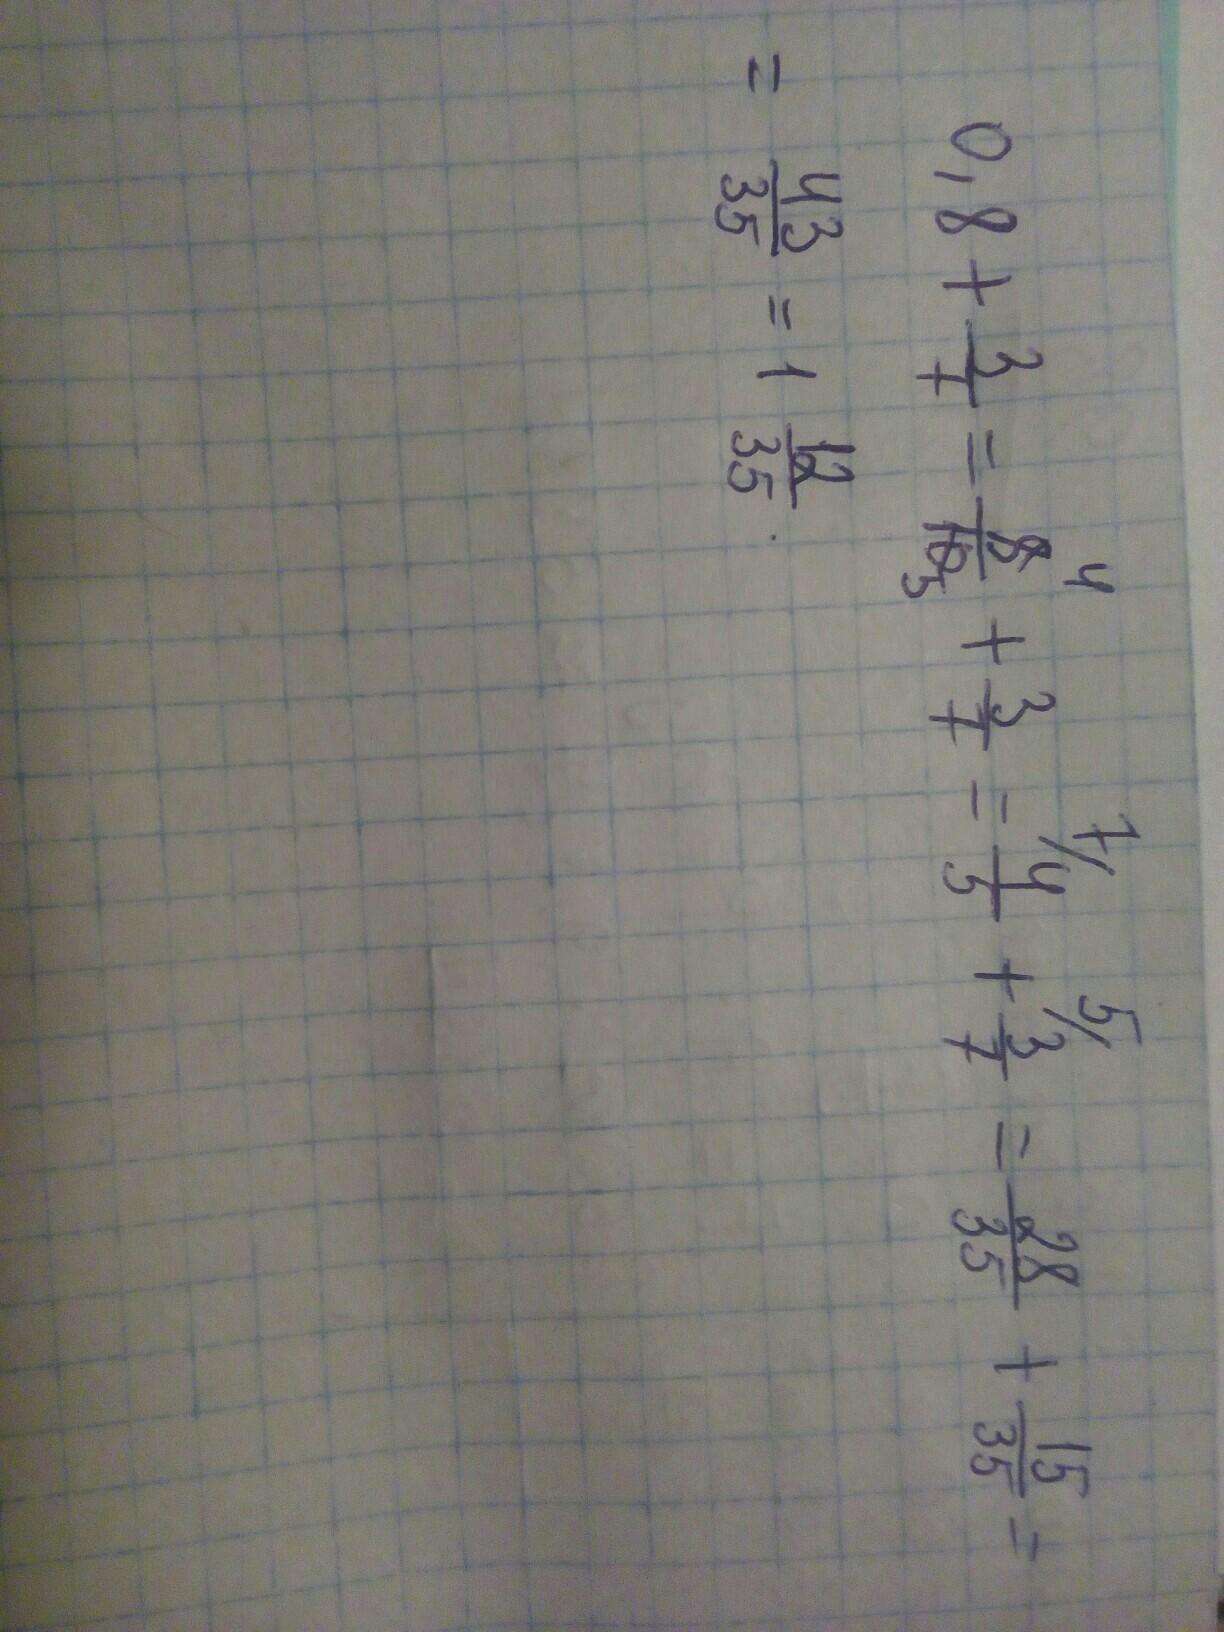 0,8 + 3/7 = 8/10 4 5 + 3/7 = 7/ 4/5 + 5/ 3/7 = 28/35 + 15/35 =
= 43/35 = 1 12/35